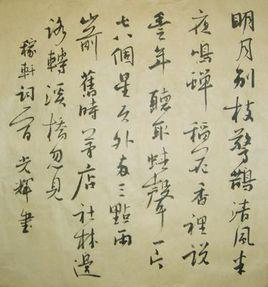 明月别枝驚鵲清風半
夜鳴蟬稻花香裡說
豐年聽取蛙聲一片
七八個星天外兩三點雨
山前舊時茅店社林邊
路轉溪橋忽見
稼軒詞一首光輝書